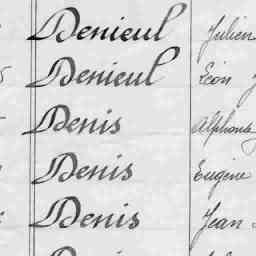 Denieul Julien
Denieul Léon
Denis Alphonse
Denis Eugène
Denis Jean